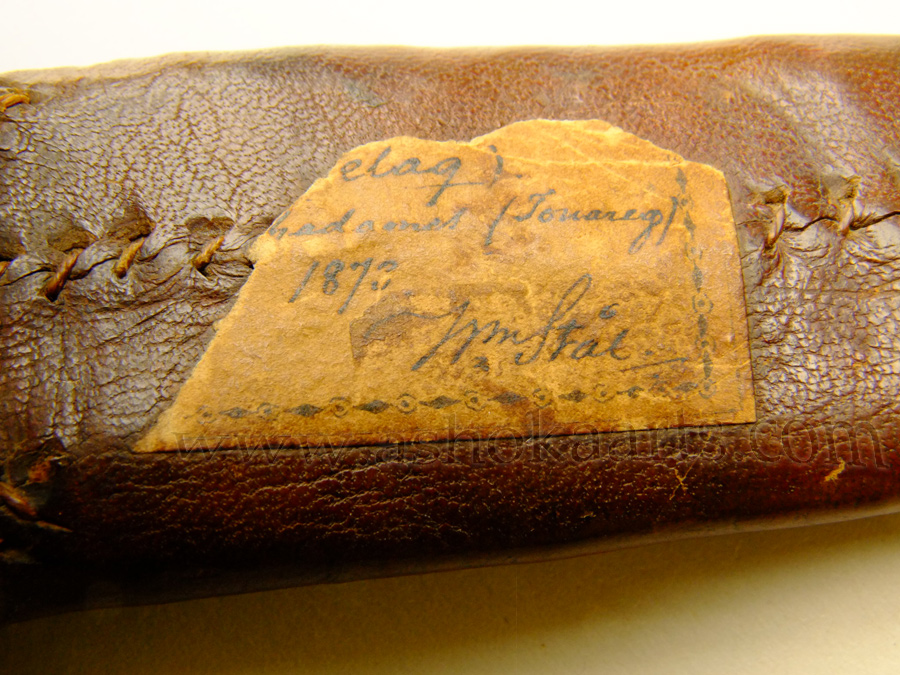 elaq)
hadamet (Touareg)
1873
Wm Stäl
www.ashokaarts.com